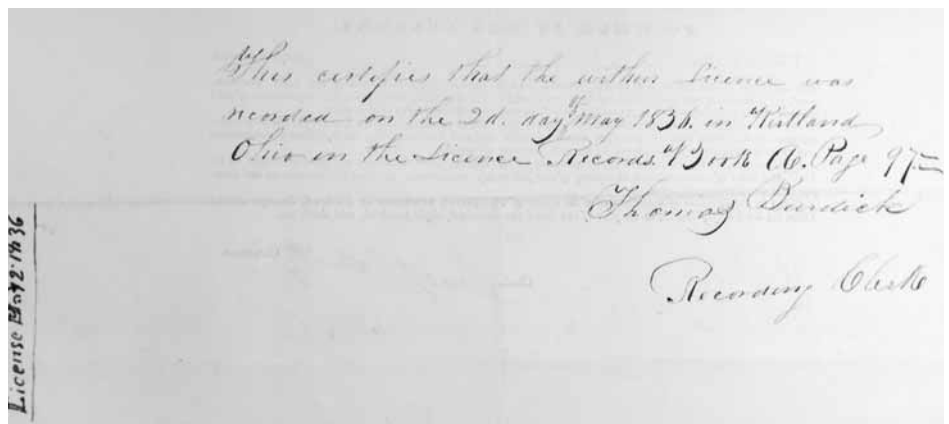 This certifies that the within Licence was
recorded on the 2d. day of May 1836. in Kirtland
Ohio in the Licence Records. Book A. Page 97
Thomas Burdick
Recording Clerk
License May 2. 1836